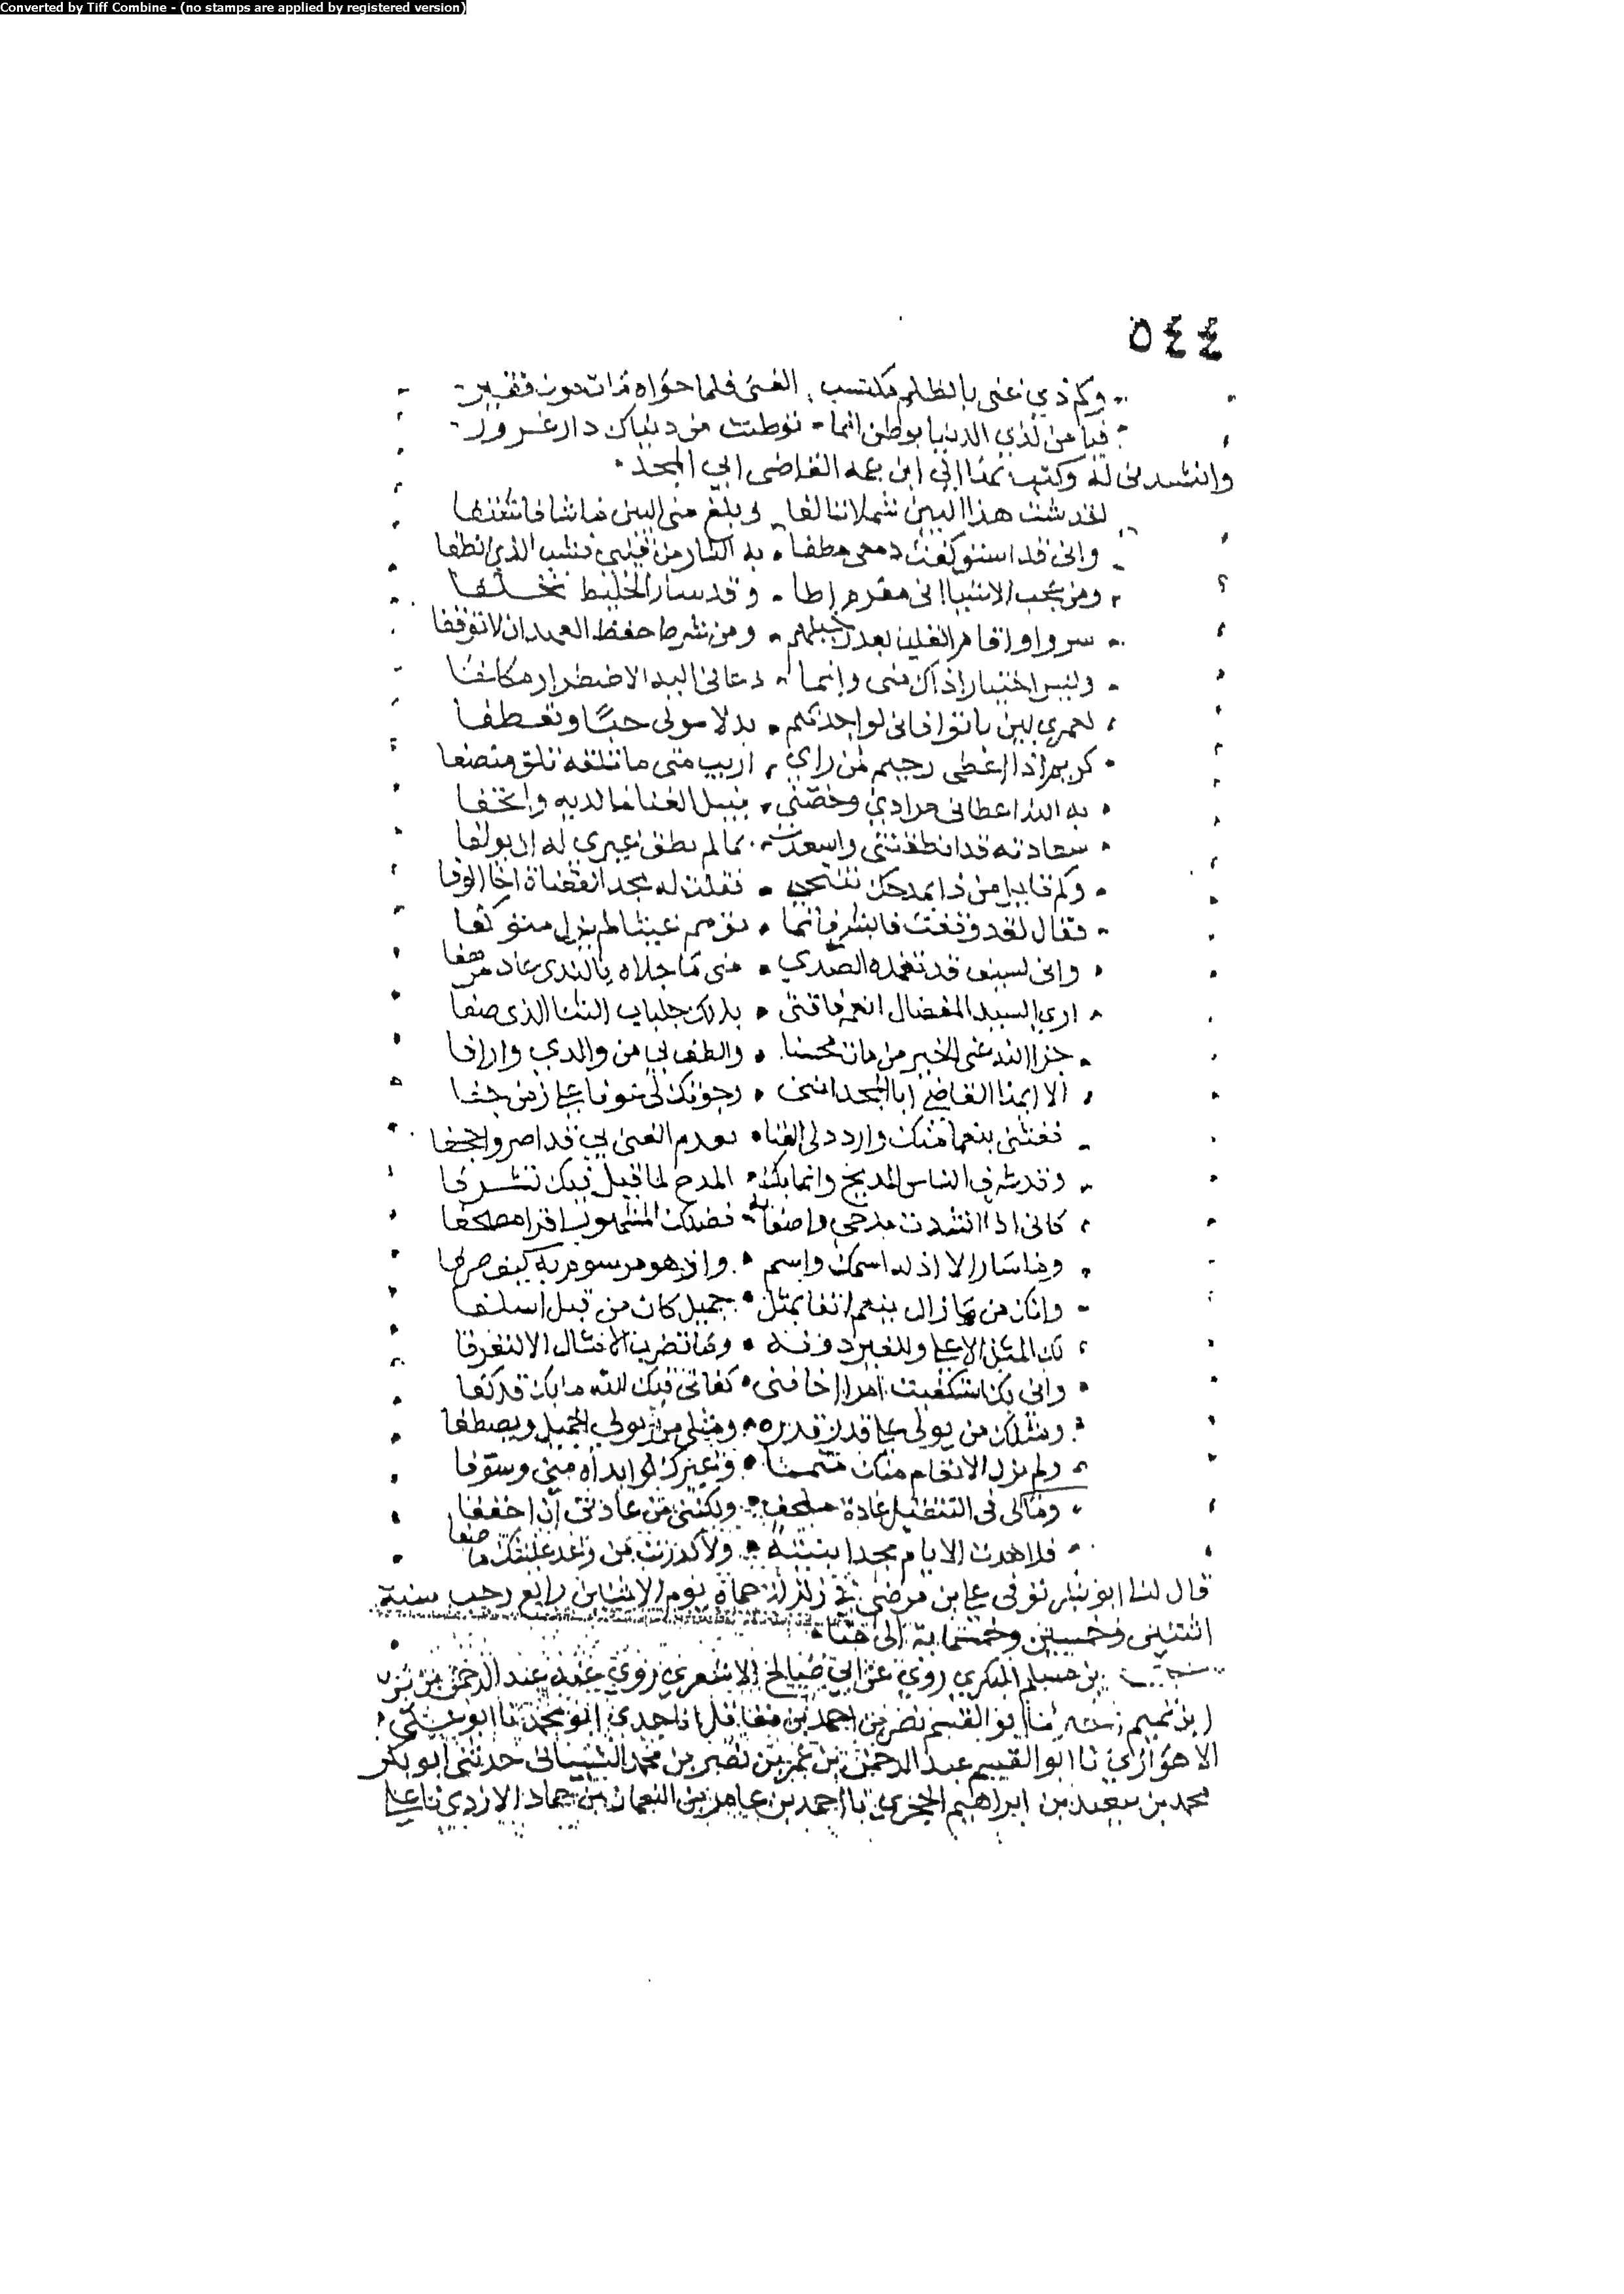 Converted by Tiff Combine - (no stamps are applied by registered version)
٥٤٤
وكم ذي غنى بالظلم مكتسب الغنى فلما حواه مات دون فقير
فيا من لذي الدنيا يوطن انما توطنت من دنياك دار غرور
وانشدني له وكتب بها الى ابن عمه القاضي ابي المجد
لقد شت هذا البين شملا تالفا وبلغ مني البين ما شا فاتلفا
واني قد استوكفت دمعي مطفا به النار من قلبي فشب الذي انطفا
ومن عجب الاشيا اني مغرم وقد سار الخليط تخلفا
سروا واقام القلب بعد رحيلهم ومن شرط حفظ العهد ان لا توقفا
وليس اختيارا ذاك مني وانما دعاني اليه الاضطرار مكلفا
لعمري لين بانوا فاني لواجد بهم بدلا مولى حبا وتعطفا
كريم اذا اعطى رحيم لمن راي اريب متى ما تلقه تلق منصفا
به الله اعطاني مرادي وخصني بنيل الغنا مما لديه واتحفا
سعادته قد انطقتني واسعدت بما لم يطق غيري له ان يولفا
وكم قايل من ذا بمدحك تنتحي فقلت له مجد القضاة اخا الوفا
فقال لقد وفقت فابشر فانما توم غيثا لم يزل متوكفا
واني لسيف قد تغمده الصدي متى ما جلاه بالندى عاد مرهفا
ارى السيد المفضال انعم فاقتنى بذلك جلباب الثنا الذي صفا
جزا الله عني الخير من مات محسنا والطف بي من والدي وارافا
الا ايهذا القاضي ابا المجد انني رجوتك لي عونا على زمن جفا
فغثني بنعما منك واردد لي الغنا بعدم الغنى بي قد اضر واجحفا
وقد شرف الناس المديح وانما بك المدح لما قيل فيك تشرفا
كاني اذا انشدت مدحي واصفا به فضلك المشهور اقرا مصحفا
وما سار الا اذ له اسمك واسم واذ هو مرسوم به كيف صرفا
وانك من ما زال ينعم انفا بمثل جميل كان من قبل اسلفا
لك المثل الاعلى وللغير دونه وما تضرب الامثال الا لتعرفا
واني بك استكفيت امرا اخافني كفاني فيك الله ما بك قد كفا
ومثلك من يولي على قدر قدره ومثلي من يولى الجميل ويصطفا
ولم يزل الانعام منك متمما وغيرك لو ابداه منى وسوفا
وما لي في التثقيل عادة ملحف ولكنني من عادتي ان اخففا
فلا هدت الايام مجدا بنيته ولا كدرت من رغد عيشك ما صفا
قال لنا ابو توفي علي بن مرضي في زلزلة حماة يوم الاثنين رابع رجب سنة
اثنتين وخمسين وخمسماية
بن مسلم البكري روى عن ابي صالح الاشعري روى عنه عبد الرحمن بن
ابن تميم ابو القسم نصر بن احمد بن مقاتل انا جدي ابو محمد نا ابو علي
الاهوازي نا ابو القسم عبد الرحمن بن عمر بن نصر بن محمد الشيباني حدثني ابو بكر
محمد بن سعيد بن ابراهيم نا احمد بن عامر بن النعمان بن حماد الازدي نا علي